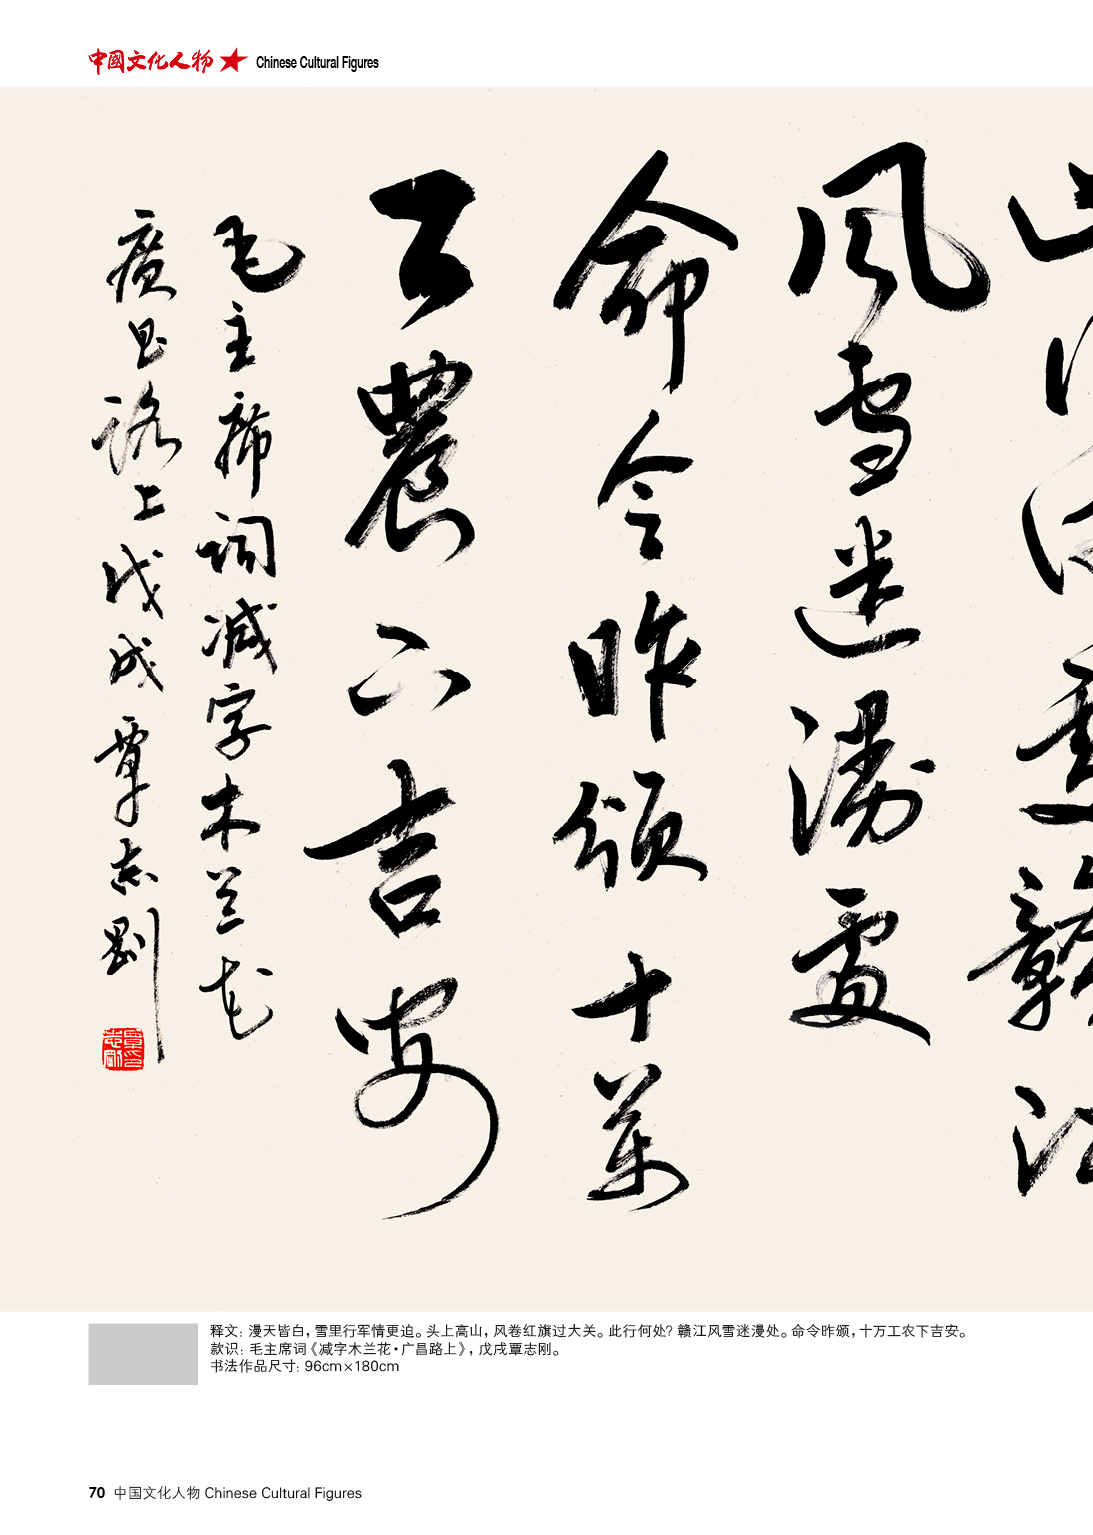 中國文化人物 Chinese Cultural Figures
風雪迷漫處
命令昨頒十萬
工農下吉安
毛主席词减字木兰花
廣昌路上戊戌覃志剛
释文：漫天皆白，雪里行军情更迫。头上高山，风卷红旗过大关。此行何处？赣江风雪迷漫处。命令昨颁，十万工农下吉安。
款识：毛主席词《减字木兰花·广昌路上》，戊戌覃志刚。
书法作品尺寸：96cm×180cm
70 中国文化人物 Chinese Cultural Figures